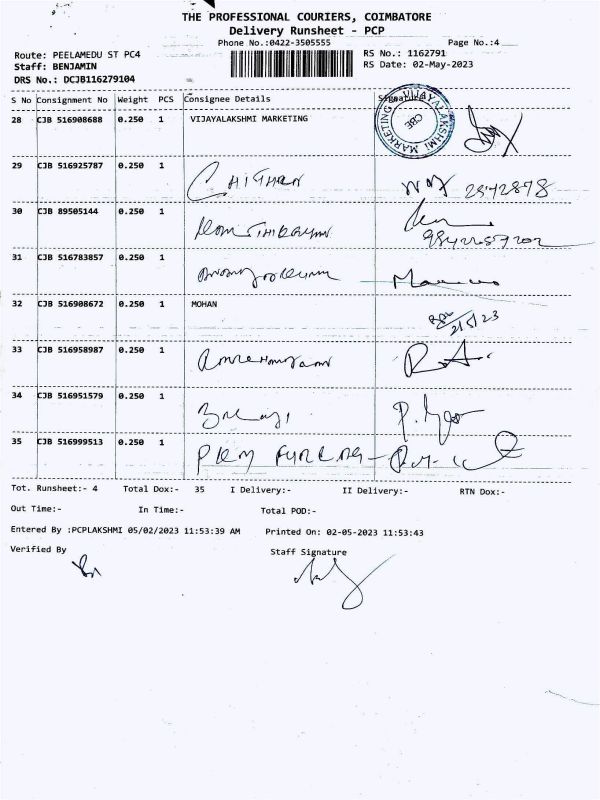 THE PROFESSIONAL COURIERS, COIMBATORE
Delivery Runsheet - PCP
Phone No.:0422-3505555 Page No.:4
Route: PEELAMEDU ST PC4 RS No.: 1162791
Staff: BENJAMIN RS Date: 02-May-2023
DRS No.: DCJB116279104
S No Consignment No Weight PCS Consignee Details Signature
28 CJB 516908688 0.250 1 VIJAYALAKSHMI MARKETING
VIJAYALAKSHMI MARKETING CBE
29 CJB 516925787 0.250 1 CHITHRA 2572878
30 CJB 89505144 0.250 1
31 CJB 516783857 0.250 1
32 CJB 516908672 0.250 1 MOHAN
2/5/23
33 CJB 516958987 0.250 1
34 CJB 516951579 0.250 1
35 CJB 516999513 0.250 1
Tot. Runsheet:- 4 Total Dox:- 35 I Delivery:- II Delivery:- RTN Dox:-
Out Time:- In Time:- Total POD:-
Entered By :PCPLAKSHMI 05/02/2023 11:53:39 AM Printed On: 02-05-2023 11:53:43
Verified By Staff Signature